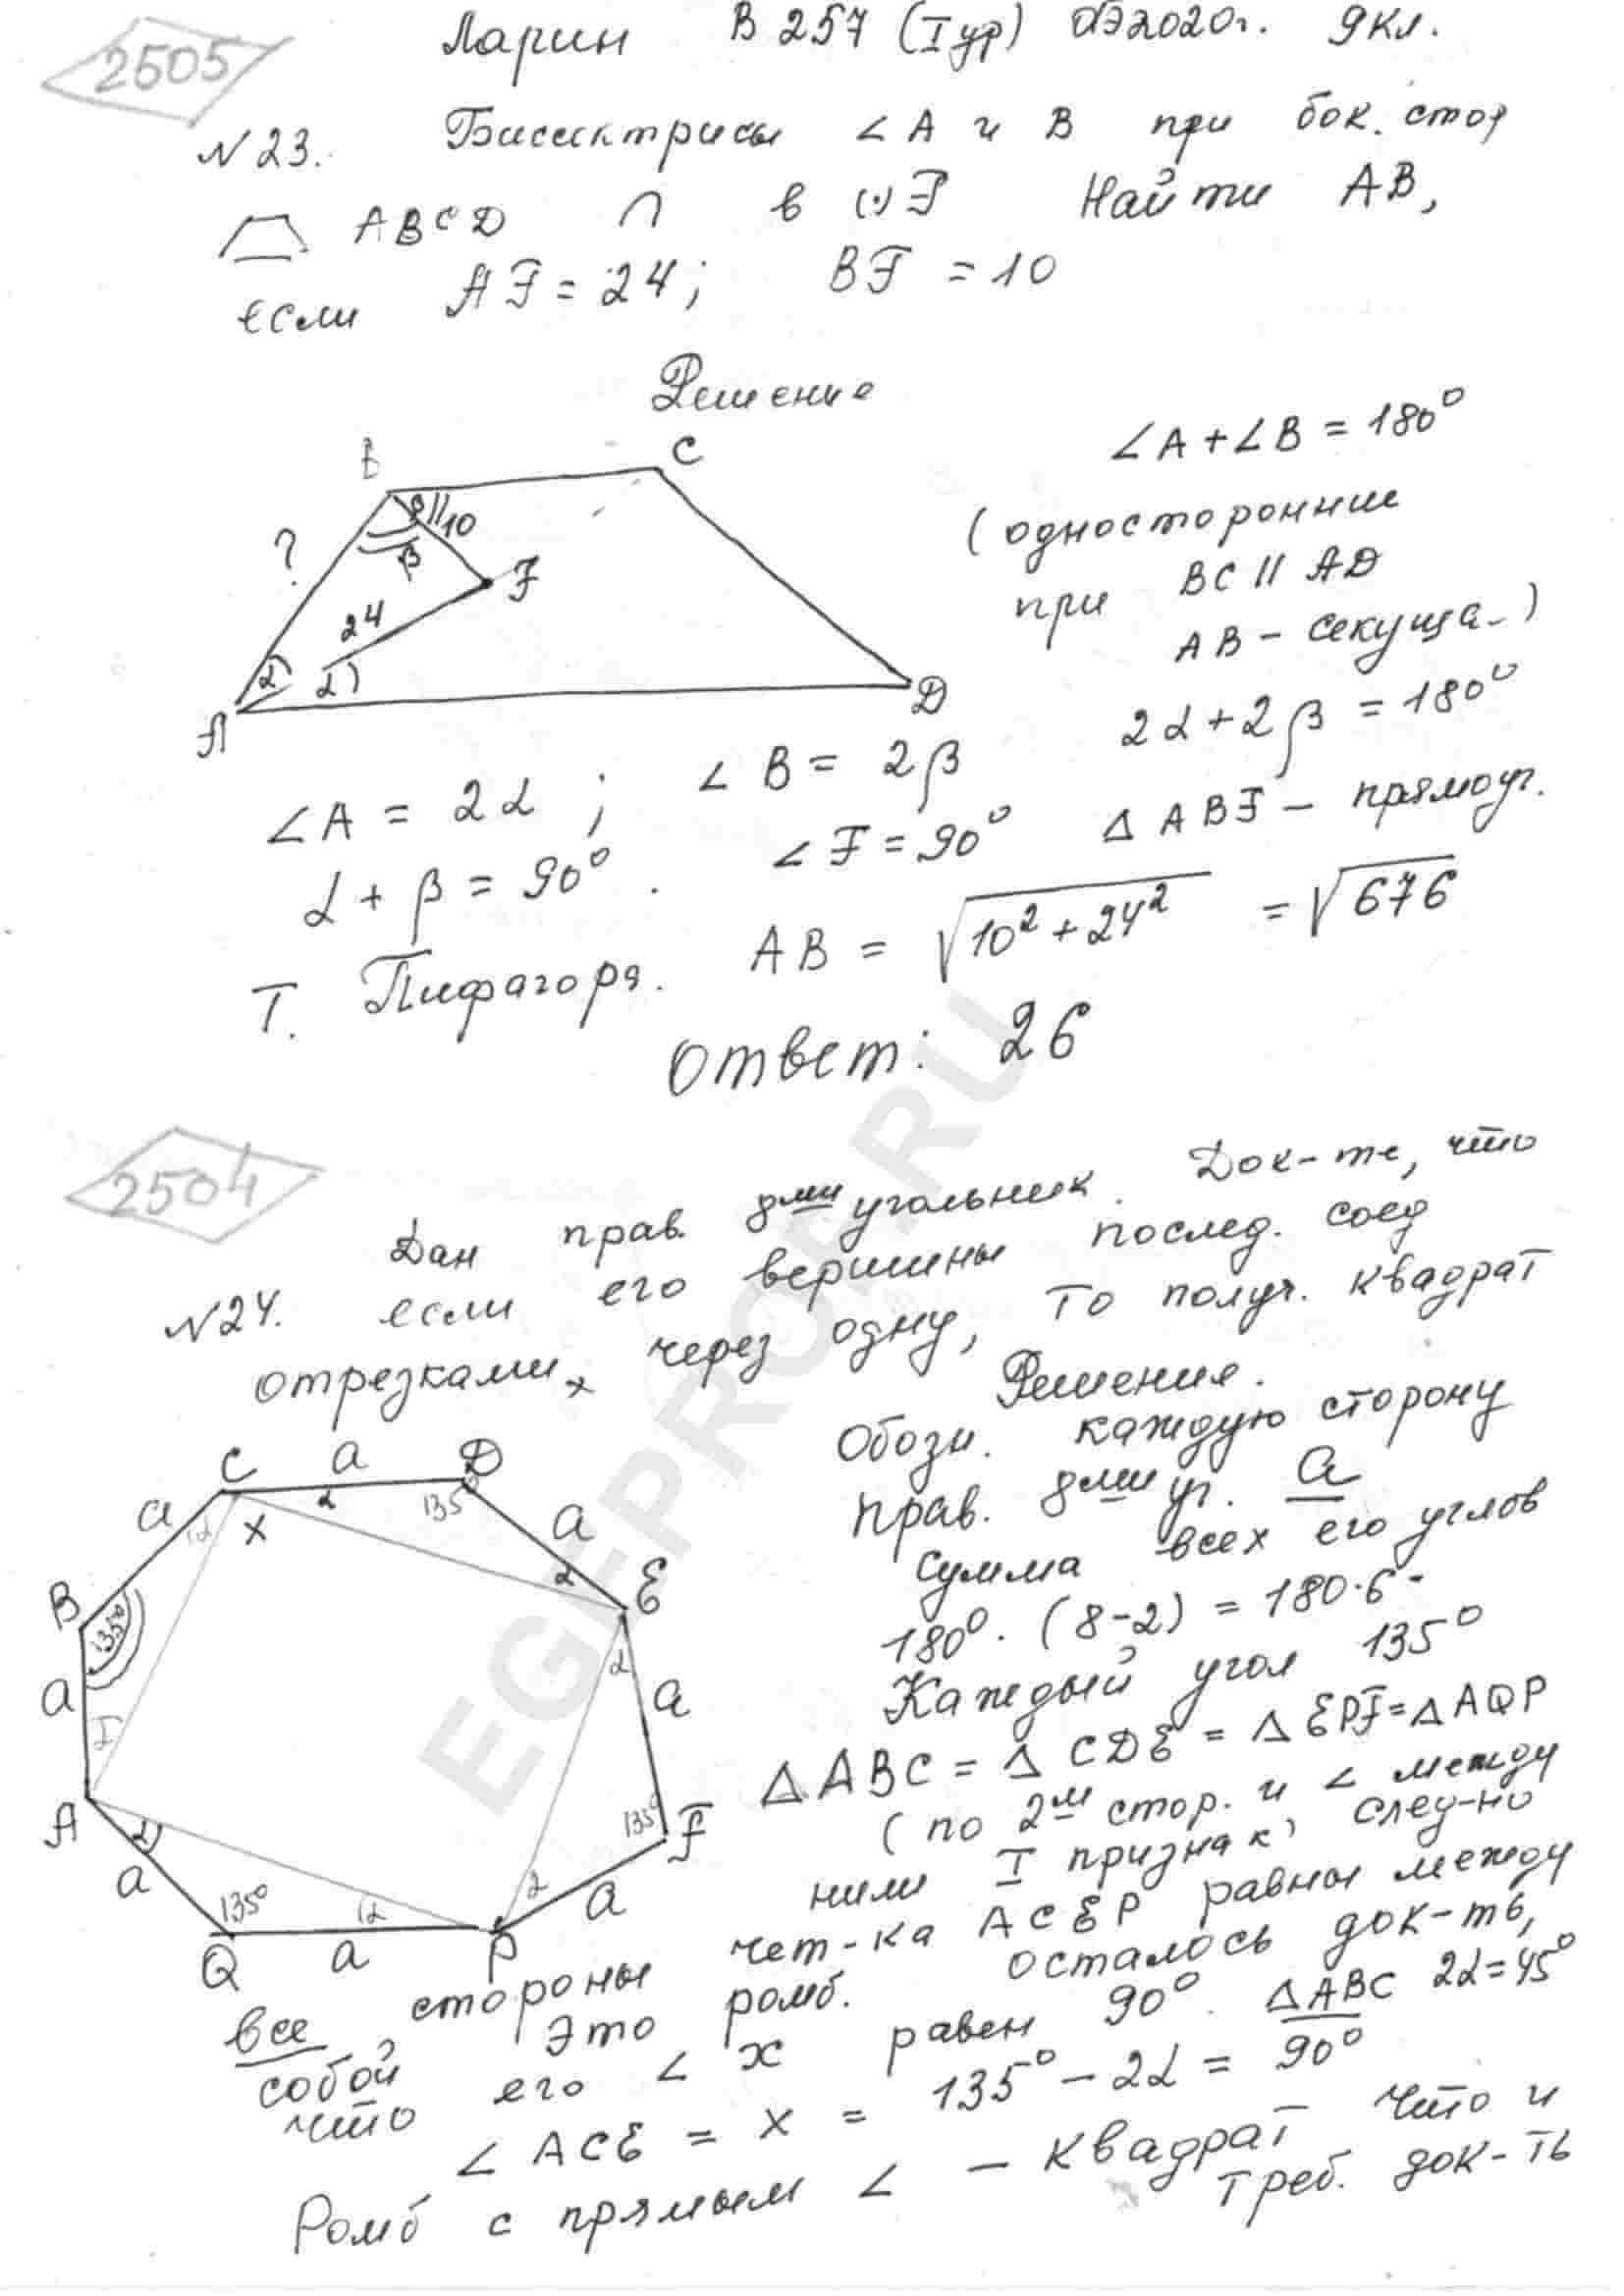 2505
Ларин В 257 (I ур) ОГЭ 2020г. 9кл.
№23. Биссектрисы ∠A и B при бок. стор
ABCD ∩ в (·) F Найти AB,
если AF = 24; BF = 10
Решение
B C
? β 10
β F
24
α α
A D
∠A + ∠B = 180°
(односторонние
при BC || AD
AB - секуща-)
2α + 2β = 180°
∠A = 2α ; ∠B = 2β
α + β = 90°. ∠F = 90° △ABF - прямоуг.
Т. Пифагора. AB = √10² + 24² = √676
Ответ: 26
2504
№24. Дан прав. 8ми угольник. Док-те, что
если его вершины послед. соед
отрезками через одну, то получ. квадрат
Решение.
Обозн. каждую сторону
прав. 8ми уг. a
Сумма всех его углов
180°·(8-2) = 180·6
Каждый угол 135°
△ABC = △CDE = △EPF = △AQP
(по 2м стор. и ∠ между
ними I признак) след-но
все стороны чет-ка ACEP равны между
собой Это ромб. осталось док-ть,
что его ∠ x равен 90°. △ABC 2α = 45°
∠ACE = x = 135° - 2α = 90°
Ромб с прямым ∠ - квадрат что и
треб. док-ть
C a D
a α x α 135° a
B 135° α E
a α a
A α 135° F
a 135° α α a
Q a P
EGEPROF.RU